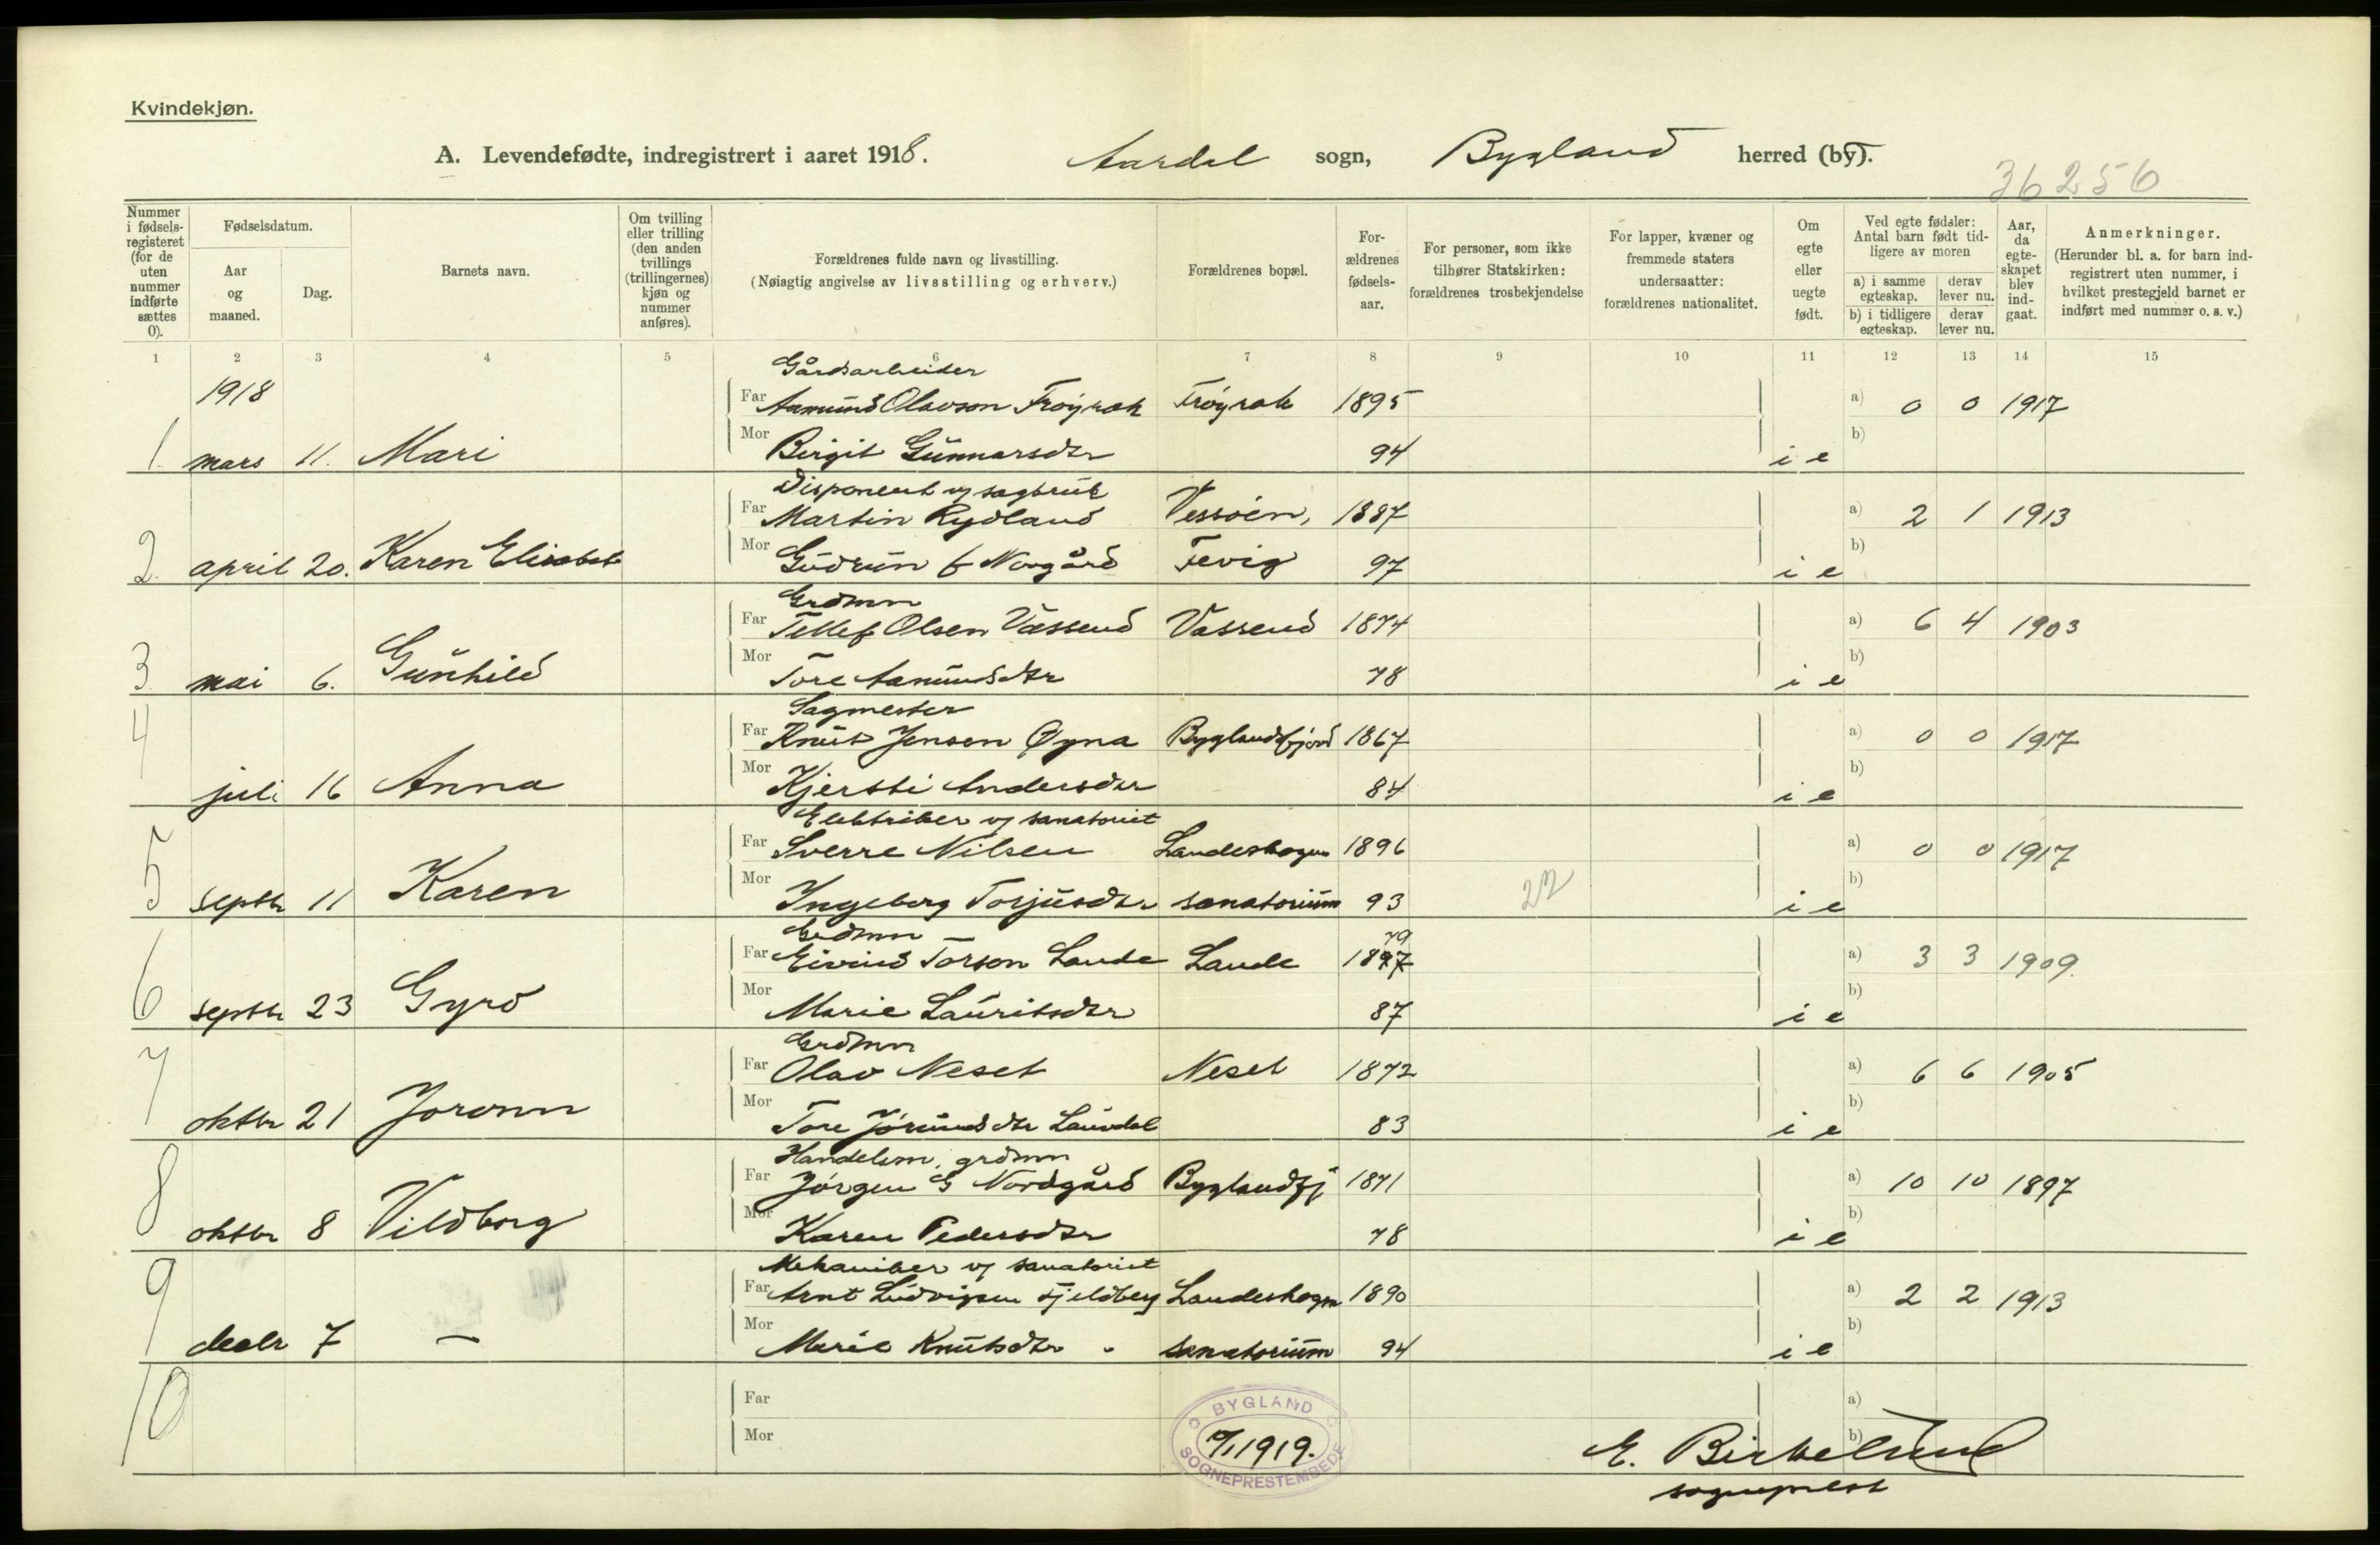 Kvindekjøn.
A. Levendefødte, indregistrert i aaret 1918. Aardal sogn, Bygland herred (by).
36256
Nummer i fødsels-registeret (for de uten nummer indførte sættes 0).
Fødselsdatum.
Aar og maaned.
Dag.
Barnets navn.
Om tvilling eller trilling (den anden tvillings (trillingernes) kjøn og nummer anføres).
Forældrenes fulde navn og livsstilling.
(Nøiagtig angivelse av livsstilling og erhverv.)
Forældrenes bopæl.
For-ældrenes fødsels-aar.
For personer, som ikke tilhører Statskirken: forældrenes trosbekjendelse
For lapper, kvæner og fremmede staters undersaatter: forældrenes nationalitet.
Om egte eller uegte født.
Ved egte fødsler: Antal barn født tid-ligere av moren
a) i samme egteskap. derav lever nu.
b) i tidligere egteskap. derav lever nu.
Aar, da egte-skapet blev ind-gaat.
Anmerkninger.
(Herunder bl. a. for barn ind-registrert uten nummer, i hvilket prestegjeld barnet er indført med nummer o. s. v.)
1 2 3 4 5 6 7 8 9 10 11 12 13 14 15
1918 Gårdsarbeider
Far Aamund Olavson Frøyrak Frøyrak 1895 a) 0 0 1917
1. mars 11. Mari Mor Birgit Gunnarsdtr 94 i e b)
Disponent v sagbruk
Far Martin Rydland Vessøen, 1887 a) 2 1 1913
2. april 20. Karen Elisabet Mor Gudrun f Norgård Fevig 97 i e b)
Grdmn
Far Tellef Olsen Vassend Vassend 1874 a) 6 4 1903
3 mai 6. Gunhild Mor Tore Aamundsdtr 78 i e b)
Sagmester
Far Knut Jensen Øyna Byglandsfjord 1867 a) 0 0 1917
4 juli 16 Anna Mor Kjersti Andersdtr 84 i e b)
Elektriker v sanatoriet
Far Sverre Nilsen Landeskogen 1896 a) 0 0 1917
5 septbr 11 Karen Mor Ingeborg Torjusdtr sanatorium 93 22 i e b)
Grdmn
Far Eivind Torson Lande Lande 1897 79 a) 3 3 1909.
6 septbr 23 Gyro Mor Marie Lauritsdtr 87 i e b)
Grdmn
Far Olav Neset Neset 1872 a) 6 6 1905
7 oktbr 21 Joronn Mor Tore Jørundsdtr Lauvdal 83 i e b)
Handelsm, grdmn
Far Jørgen G Nordgård Byglandsfj 1871 a) 10 10 1897
8 oktbr 8 Vildborg Mor Karen Pedersdtr 78 i e b)
Mekaniker v sanatoriet
Far Arnt Ludvigsen Fjeldberg Landeskogen 1890 a) 2 2 1913
9 decbr 7 — Mor Marie Knutsdtr sanatorium 94 i e b)
10 Far a)
Mor b)
BYGLAND SOGNEPRESTEMBEDE
1919.
E. Birkelund
sogneprest